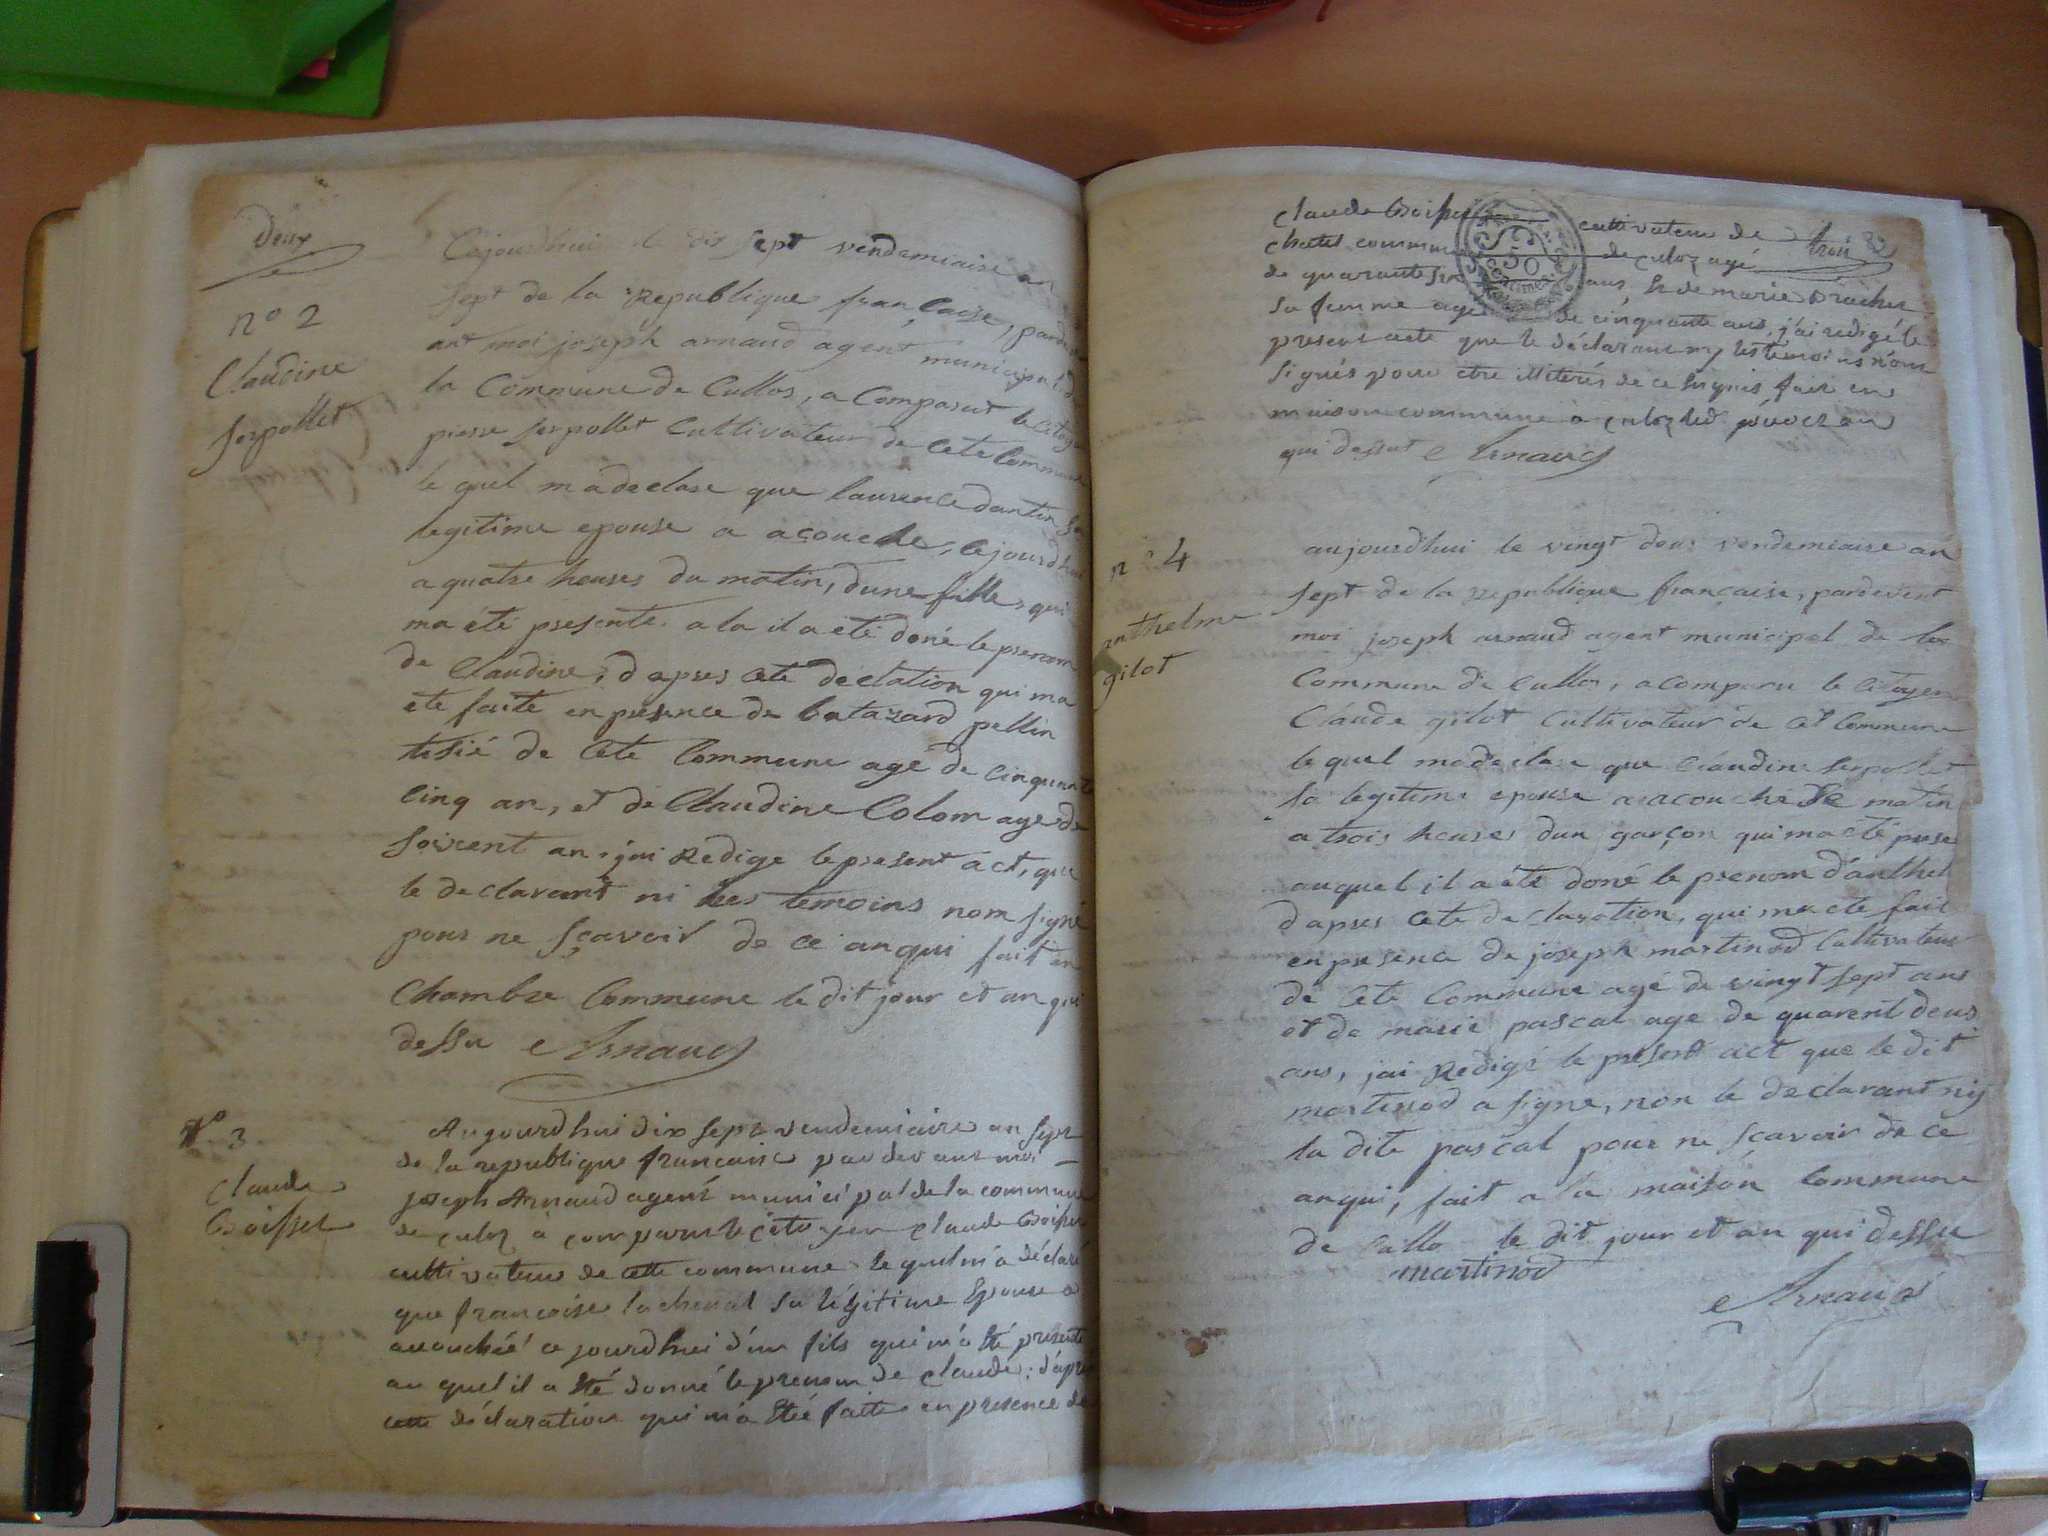 Deux
n° 2
Claudine
Serpollet
Cejourdhui le dix sept vendemiaire an
sept de la Republique françaize, pardev
ant moi joseph arnaud agent municipal d
la Commune de Cullos, a Comparut le citoye
pierre serpollet Cultivateur de cete Commune
le quel ma declare que laurence dantin sa
legitime epouse a acouche, cejourdhui
a quatre heures du matin, dune fille, qui
ma été presenté a la il a eté doné le prenom
de Claudine, d apres cete declation qui ma
ete faite en presence de batazard pellin
tisié de Cete Commune agé de cinquente
cinq an, et de Claudine Colom age de
soixent an, jai Redige le present act, que
le declarant ni les temoins nom signé
pour ne sçavoir de ce anqui fait en
Chambre Commune le dit jour et an qui
dessu Arnaud
N° 3
Claude
Boisset
Aujourdhui dix sept vendemiaire an sept
de la republique francaise par devant moi
joseph Arnaud agent municipal de la commune
de culoz à comparu le citoyen claude Boisset
cultivateur de cette commune le quel m'a déclaré
que francoise lachenal sa légitime Epouse a
accouchée ce jourdhui d'un fils qui m'a Eté presenté
au quel il a Eté donné le prenom de claude; d'apres
cette déclaration qui m'a Eté faite en presence de
claude Boisset cultivateur de
trois
chatel commune de culoz agé
de quarante six ans, & de marie Bracher
sa femme agée de cinquante ans, j'ai redigé le
present acte que le déclarant ny les temoins n'ont
signés pour etre illiterés de ce enquis fait en
maison commune à culoz led. jour et an
qui dessut Arnaud
50
CENTIMES
n° 4
anthelme
gilot
aujourdhui le vingt deus vendemiaire an
sept de la Republique française, pardevent
moi joseph arnaud agent municipal de la
Commune de Cullos, a comparu le citoyen
Claude gilot Cultivateur de cet Commune
le quel ma declare que Claudine serpollet
sa legitime epouse a acouché ce matin
a trois heures dun garçon qui ma été prese
auquel il a été doné le prenom d'anthel
d apres cete declaration, qui ma ete fait
en presence de joseph martinod Cultivateur
de Cete Commune agé de vingt sept ans
et de marie pascal age de quarent deus
ans, jai Redigé le present act que le dit
martinod a signe, non le declarant nij
la dite pascal pour ne sçavoir de ce
anqui, fait a la maison Commune
de Cullo le dit jour et an qui dessu
martinod
Arnaud